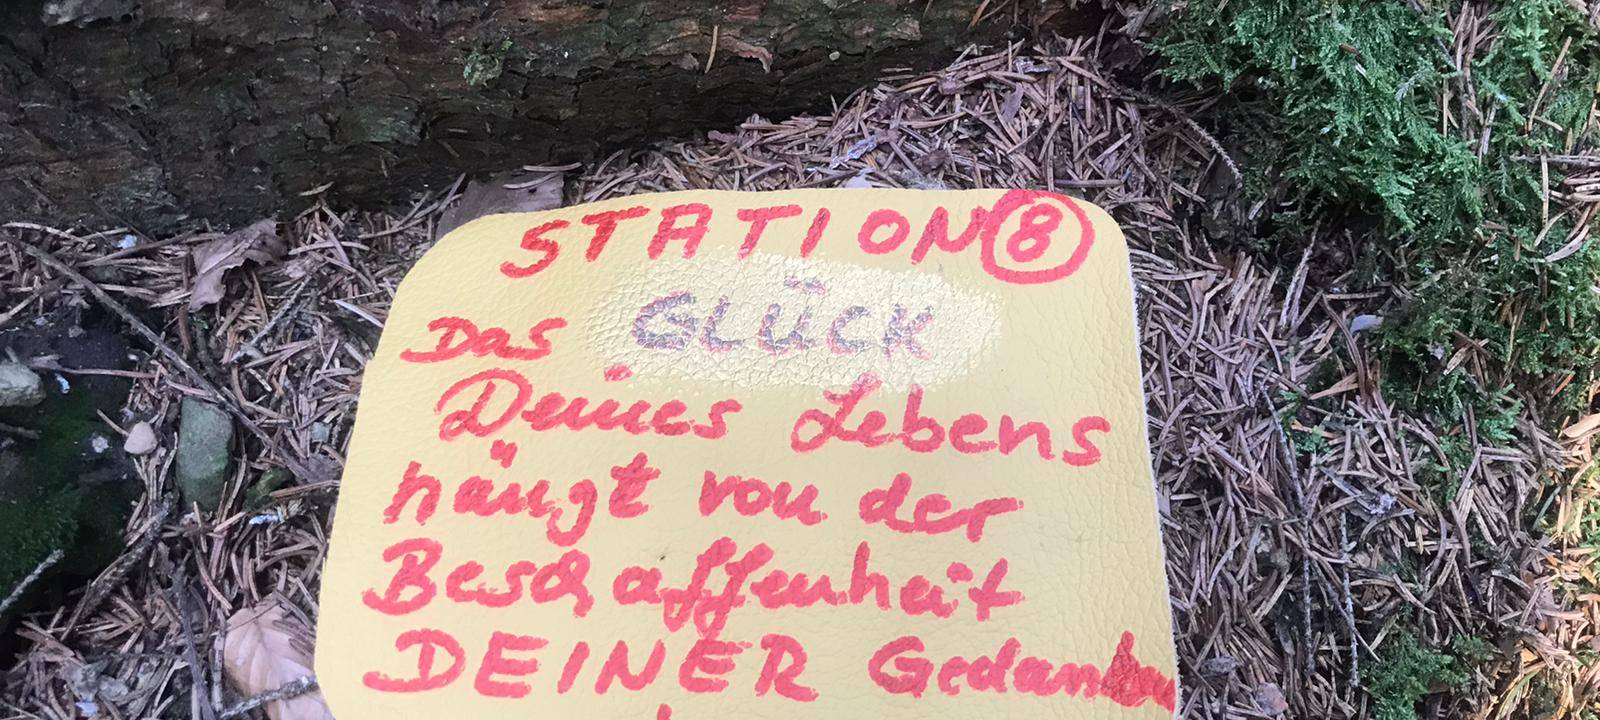 STATION 8
GLÜCK
Das
Deines Lebens
hängt von der
Beschaffenheit
DEINER Gedanken